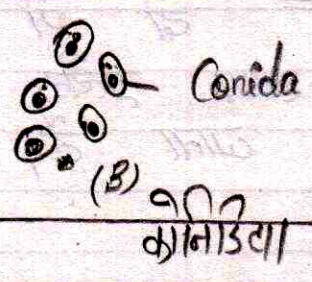 Conida
(B)
कोनिडिया